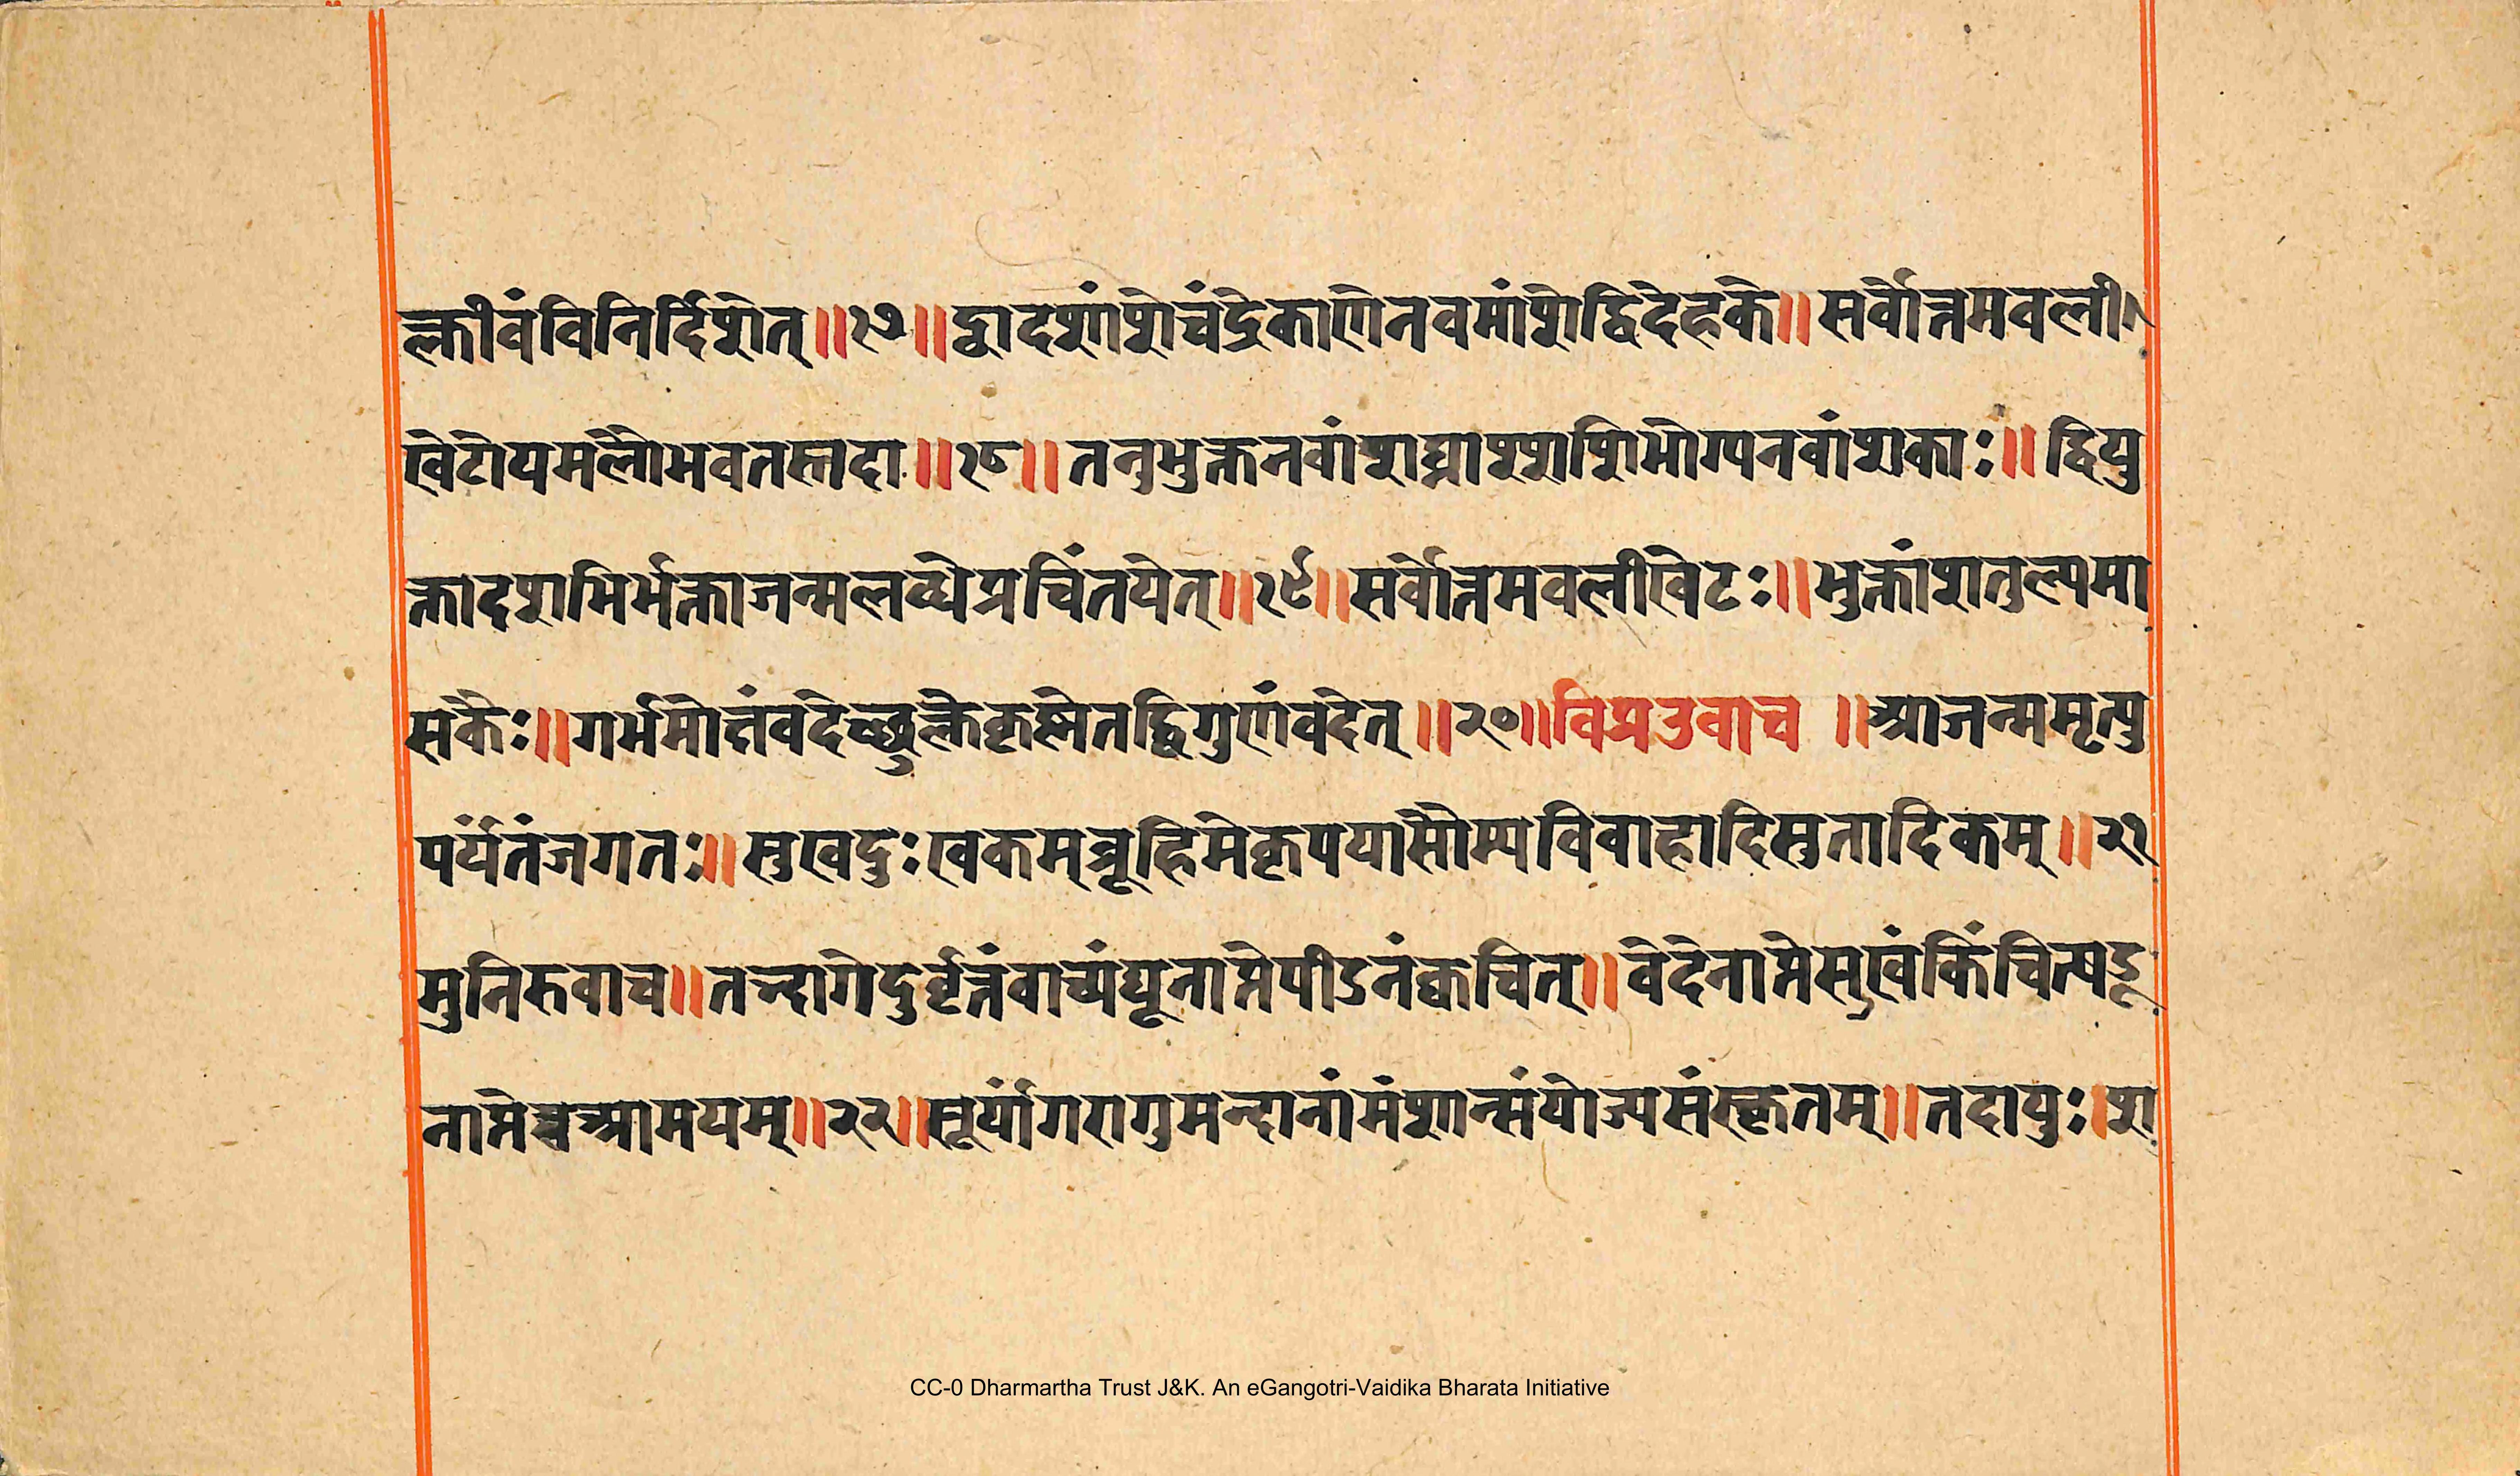 ल्कीवंविनिर्दिशेत्॥१७॥द्वादशांशेचंद्रेकाणेनवमांशेद्विदेहके॥सर्वोत्तमवली
खेटोयमलौभवतस्तदा॥१८॥तनुभुक्तनवांशघ्नाश्शशिभोग्यनवांशकाः॥द्वियु
क्तादशभिर्भक्ताजन्मलब्धेप्रचिंतयेत्॥१९॥सर्वोत्तमवलीखेटः॥भुक्तांशतुल्यमा
सकैः॥गर्भमोत्तंवदेच्छुल्केकृष्णेतद्विगुणंवदेत्॥२०॥विप्रउवाच॥आजन्ममृत्यु
पर्यंतंजगतः॥सुखदुःखकम्ब्रूहिमेकृपयासौम्यविवाहादिसुतादिकम्॥२१
मुनिरुवाच॥तन्दागेदुर्वृत्तंवाच्यंद्यूनाप्तेपीडनंक्वचित्॥वेदेनाप्तेसुखंकिंचित्षडू
नाप्तेष्वआमयम्॥२२॥सूर्यांगरागुमन्दानांमंशान्संयोज्यसंस्कृतम्॥तदायुः।श
CC-0 Dharmartha Trust J&K. An eGangotri-Vaidika Bharata Initiative